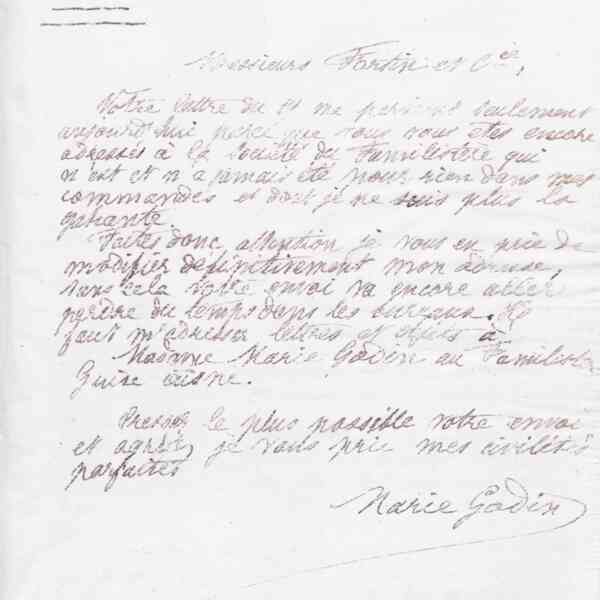 Messieurs Fortin et Cie,
Votre lettre du 21 me parvient seulement
aujourd'hui parce que vous vous êtes encore
adressés à la Société du Familistère qui
n'est et n'a jamais été pour rien dans mes
commandes et dont je ne suis plus la
gérante.
Faites donc attention je vous en prie de
modifier définitivement mon adresse,
sans cela votre envoi va encore aller
perdre du temps dans les bureaux. Il
faut m'adresser lettres et effets à
Madame Marie Godin au Familistère
Guise Aisne.
Pressez le plus possible votre envoi
et agréez, je vous prie mes civilités
parfaites
Marie Godin